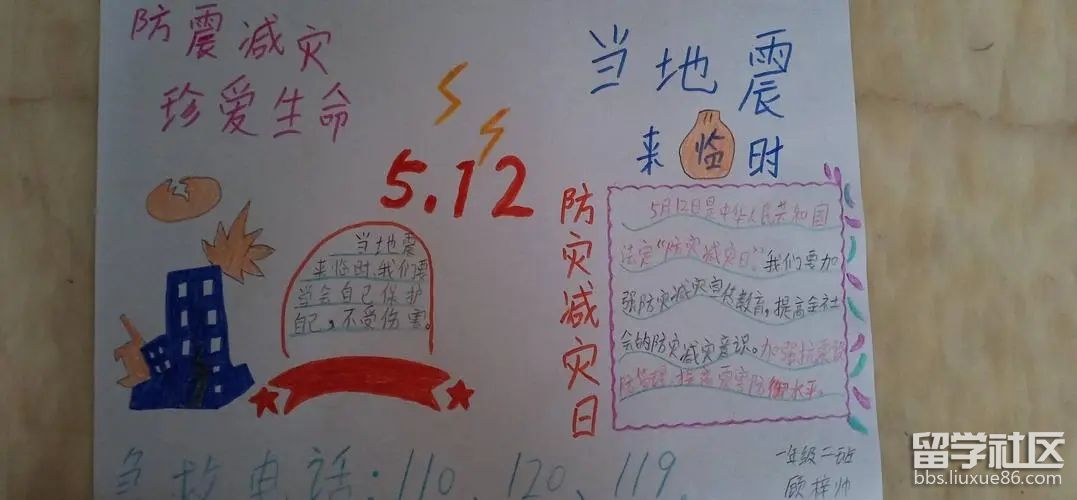 防震减灾
珍爱生命
5.12
当地震
来临时
当地震
来临时,我们要
学会自己保护
自己,不受伤害。
防灾减灾日
5月12日是中华人民共和国
法定“防灾减灾日”。我们要加
强防灾减灾宣传教育,提高全社
会的防灾减灾意识。加强抗震设
防管理,提高灾害防御水平。
急救电话:110、120、119.
一年级二班
顾梓帅
留学社区
bbs.liuxue86.com